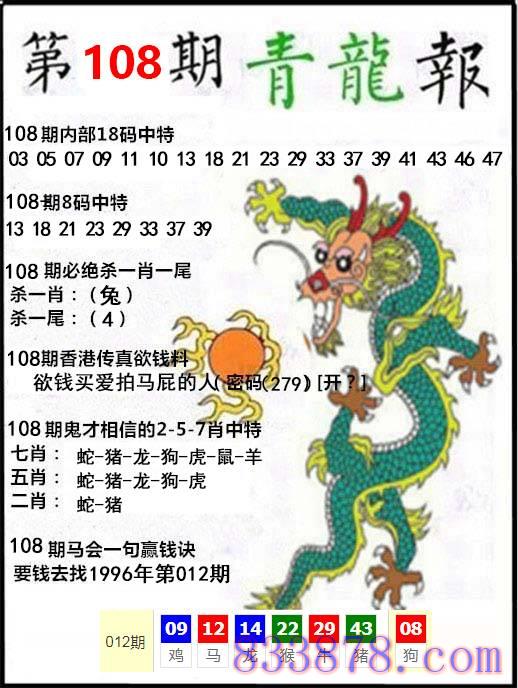 第108期青龍報
108期内部18码中特
03 05 07 09 11 10 13 18 21 23 29 33 37 39 41 43 46 47
108期8码中特
13 18 21 23 29 33 37 39
108期必绝杀一肖一尾
杀一肖：（兔）
杀一尾：（4）
108期香港传真欲钱料
欲钱买爱拍马屁的人（密码(279）[开？]
108期鬼才相信的2-5-7肖中特
七肖：蛇-猪-龙-狗-虎-鼠-羊
五肖：蛇-猪-龙-狗-虎
二肖：蛇-猪
108期马会一句赢钱诀
要钱去找1996年第012期
012期 09 12 14 22 29 43 08
鸡 马 龙 猴 牛 猪 狗
833878.com